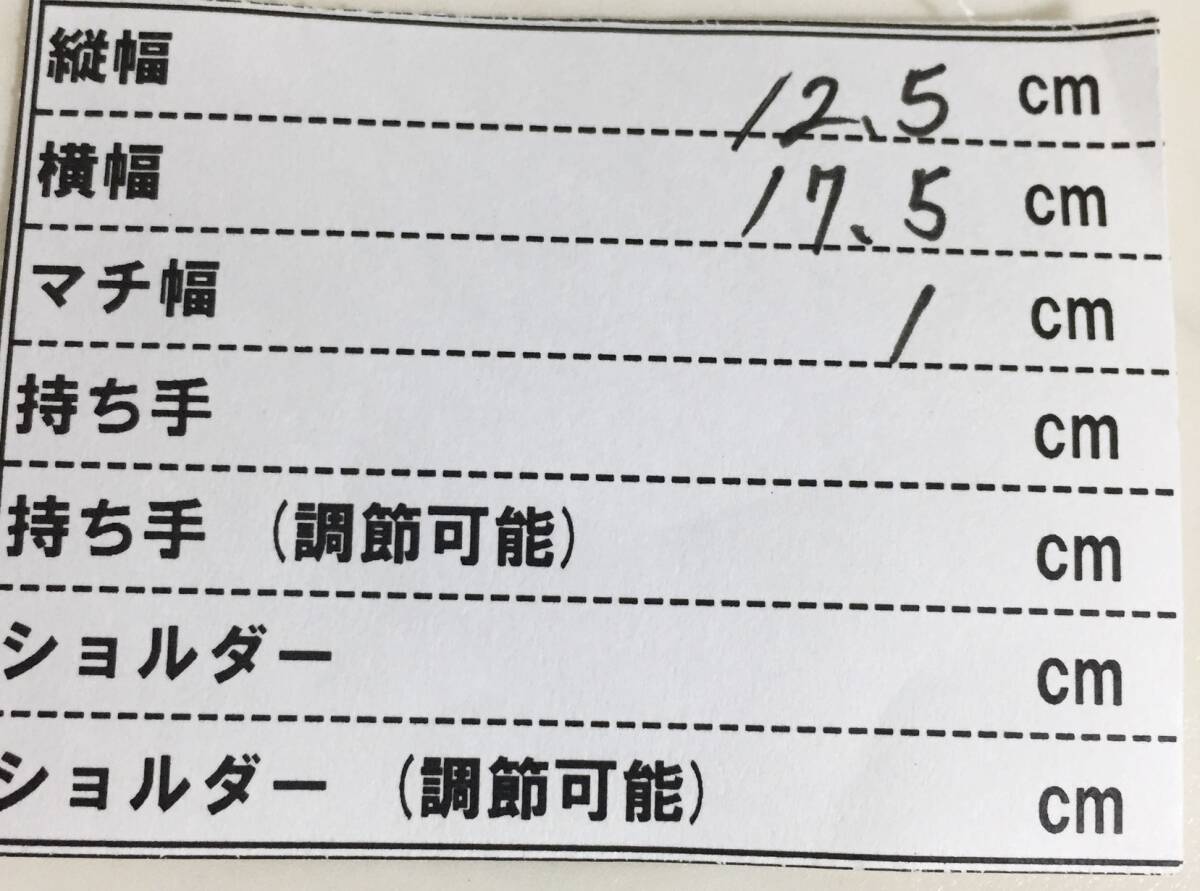 縦幅 12.5 cm
横幅 17.5 cm
マチ幅 1 cm
持ち手 cm
持ち手 (調節可能) cm
ショルダー cm
ショルダー (調節可能) cm